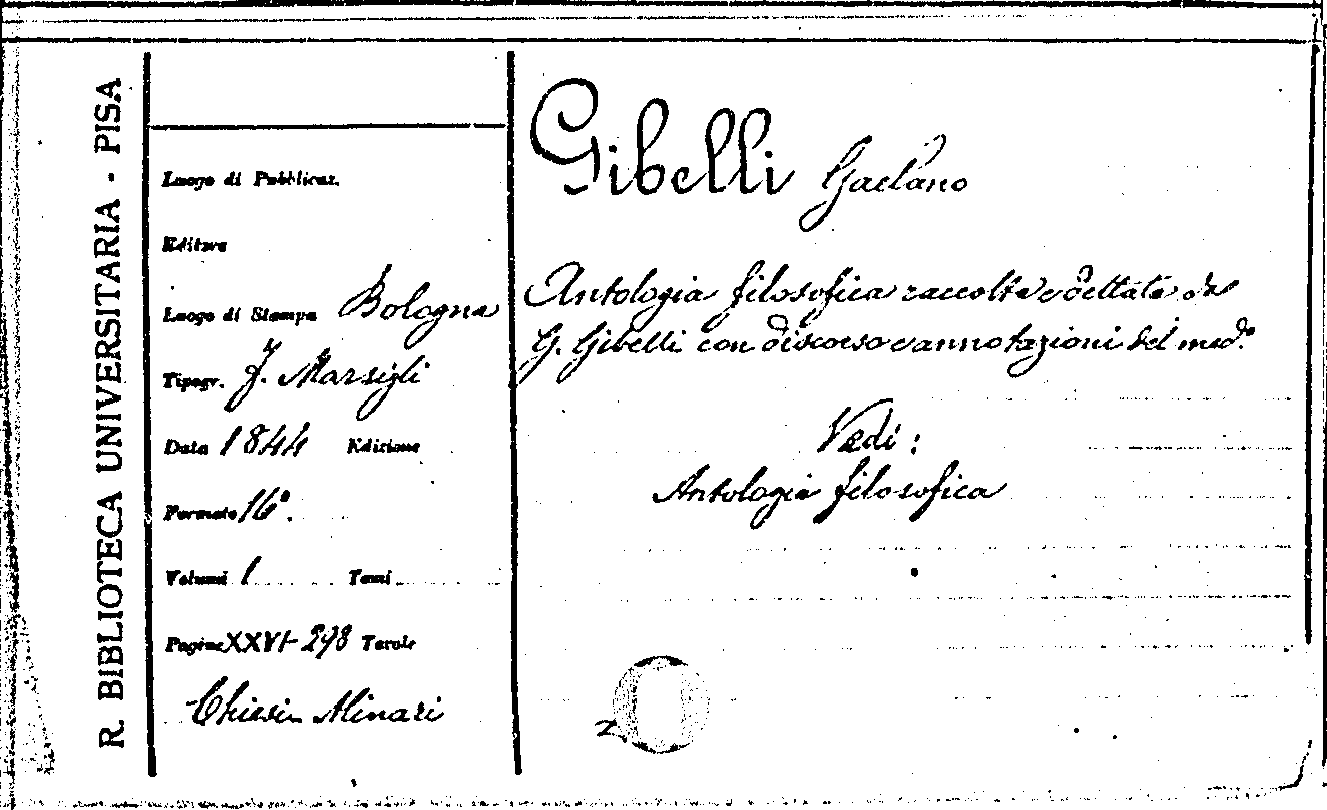 R. BIBLIOTECA UNIVERSITARIA - PISA
Luogo di Pubblicaz.
Editore
Luogo di Stampa Bologna
Tipogr. J. Marsigli
Data 1844 Edizione
Formato 16°.
Volumi 1 Tomi
Pagine XXVI-298 Tavole
Gibelli Gaetano
Antologia filosofica raccolta e dettata da
G. Gibelli con discorso e annotazioni del med.°
Vedi:
Antologia filosofica